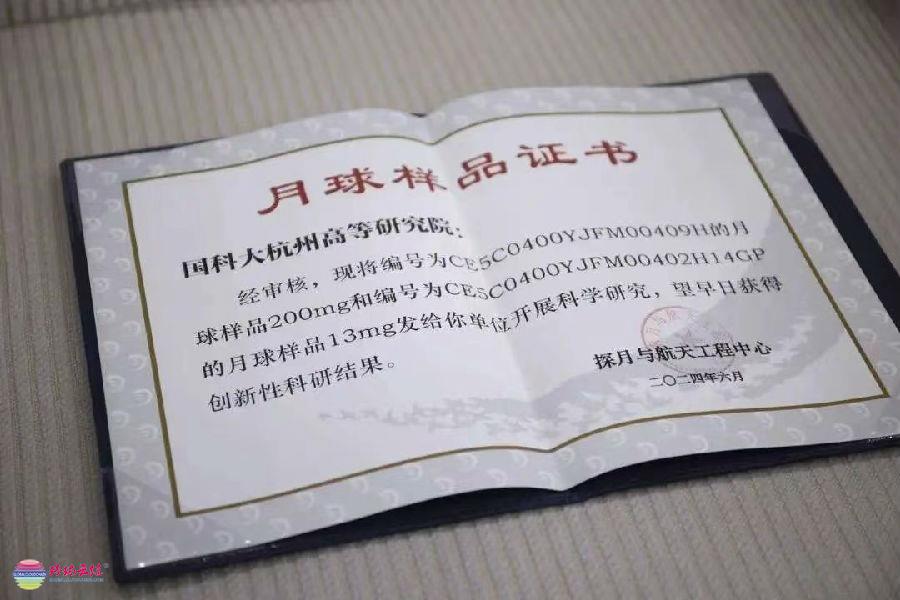 月球样品证书
国科大杭州高等研究院：
经审核，现将编号为CE5C0400YJFM00409H的月
球样品200mg和编号为CE5C0400YJFM00402H14GP
的月球样品13mg发给你单位开展科学研究，望早日获得
创新性科研结果。
探月与航天工程中心
二〇二四年六月